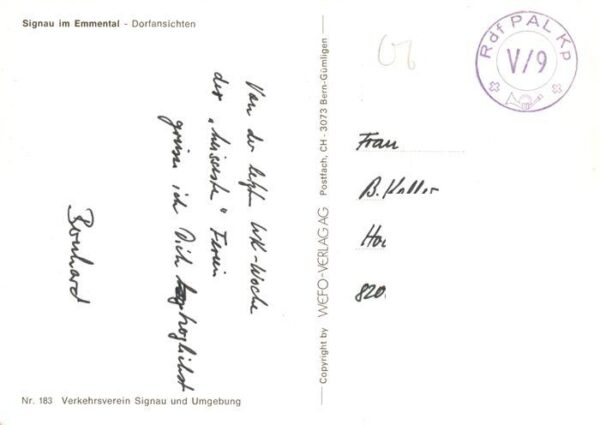 Signau im Emmental - Dorfansichten
Von der letzten WK-Woche
der „heissesten" Ferien
grüsse ich Dich herzlichst
Bernhard
Nr. 183 Verkehrsverein Signau und Umgebung
Copyright by WEFO-VERLAG AG Postfach, CH - 3073 Bern-Gümligen
06
Rdf PAL Kp
V/9
Frau
B. Keller
820